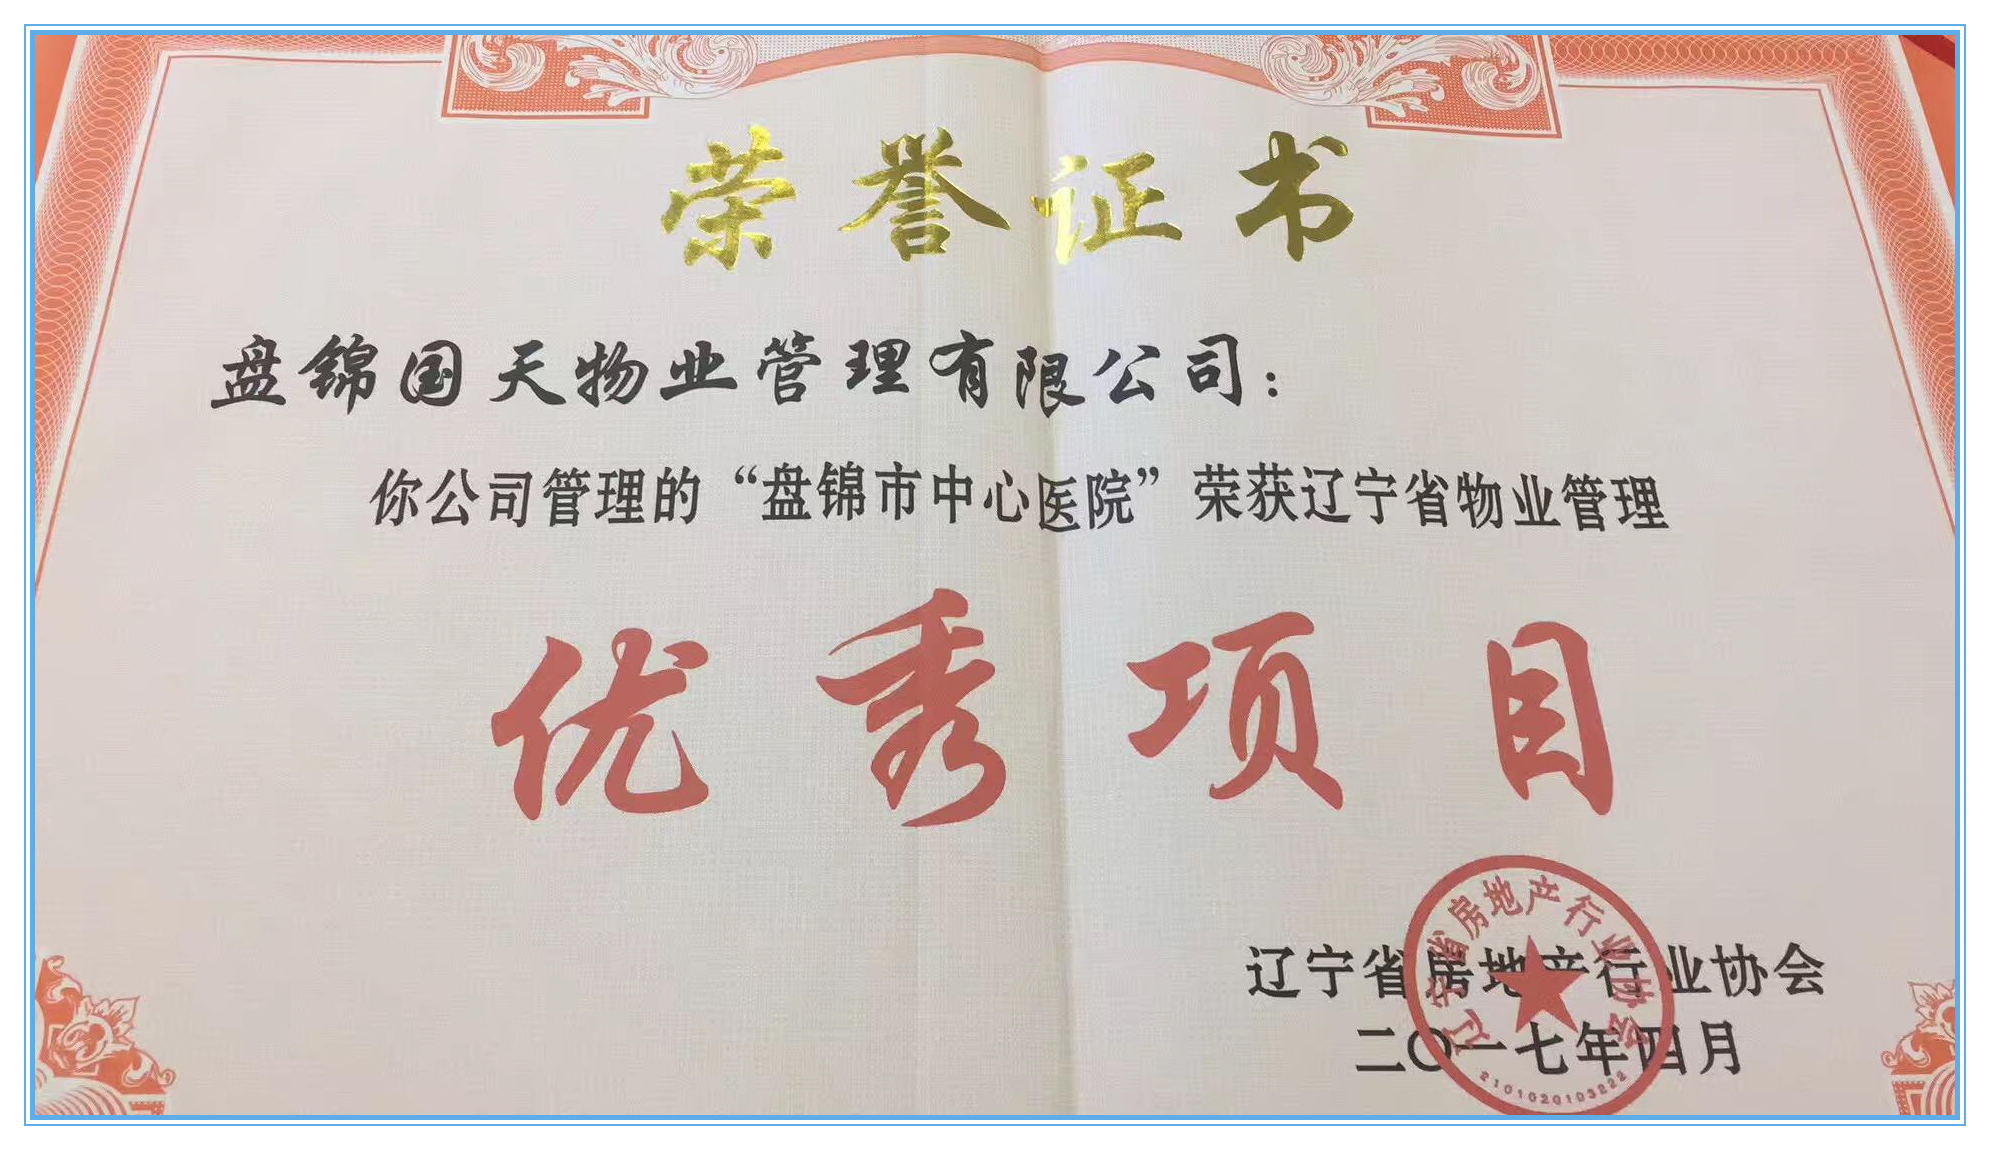 荣誉证书
盘锦国天物业管理有限公司：
你公司管理的“盘锦市中心医院”荣获辽宁省物业管理
优秀项目
辽宁省房地产行业协会
二〇一七年四月
辽宁省房地产行业协会
2101020103222